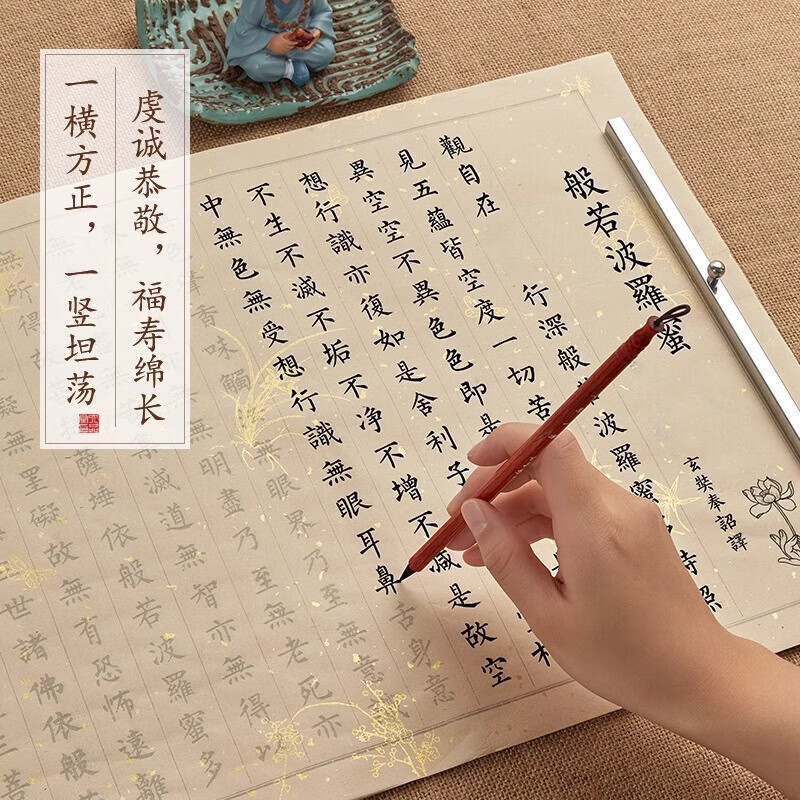 虔诚恭敬，福寿绵长
一横方正，一竖坦荡
般若波羅蜜
玄奘奉詔譯
觀自在 行深般若波羅蜜多時照
見五蘊皆空度一切苦
異空空不異色色即是
想行識亦復如是舍利子
不生不滅不垢不净不增不減是故空
中無色無受想行識無眼耳鼻舌身意
香味觸 無眼界乃至無意識
無明盡乃至無老死亦
滅道無智亦無得以
所得故 薩埵依般若波羅蜜多
礙無罣礙故無有恐怖遠
世諸佛依般
菩